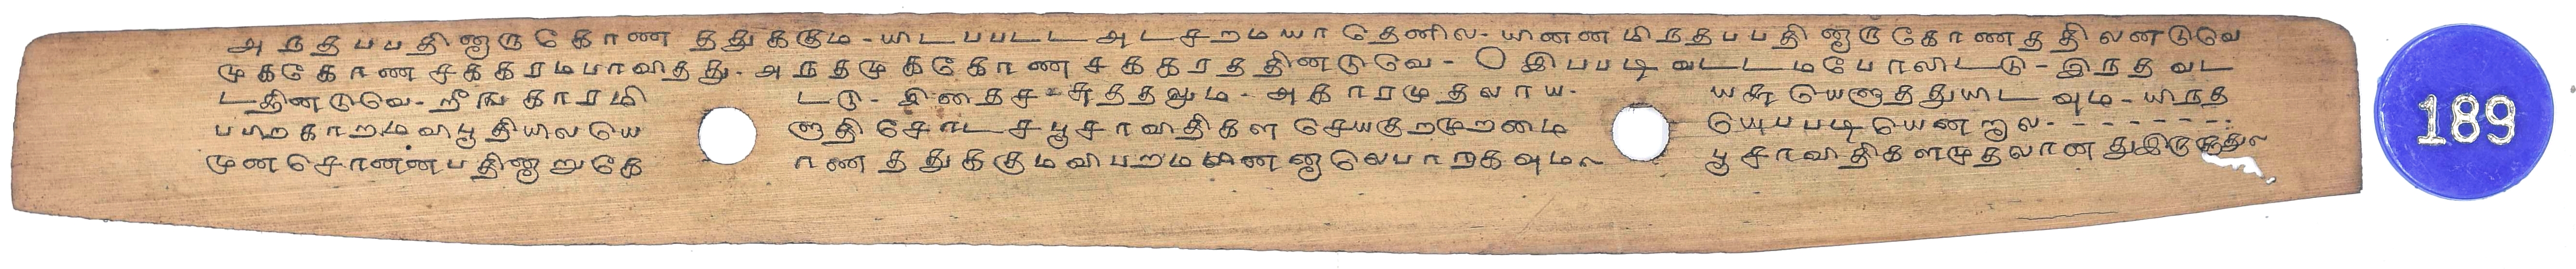 அ ந த ப ப தி னாறு கோ ண த து க கு ம - யிட ப ப ட ட அ ட ச ற ம யா தெனில - யினன மிநதப ப தி னாறு கோ ண த தி ல ன டு வே
மு க கோ ண ச க க ர ம பா வி த து - அ ந த மு க கோ ண ச க க ர த தினடுவே - 〇 இ ப ப டி வ ட ட ம போ லிட டு - இ ந த வ ட
ட தின டுவே - றீ ங கா ர மி ட டு - இதைச சுத்தவும - அ கா ர மு த லா ய யெழுத துயிட வும - யிநத
ப பிற கா ற ம வி பூ தியில யெ ழுதி சோட ச பூ சா விதிகள செயகுறமுறமை யெப ப டி யெனறால - - - - - - - -
முன சொனன ப தினாறு கோ ண த து க கு ம வி ப ற ம னனாலெ பா றகவும பூ சா விதிகளமுதலான துஇருககுது
189